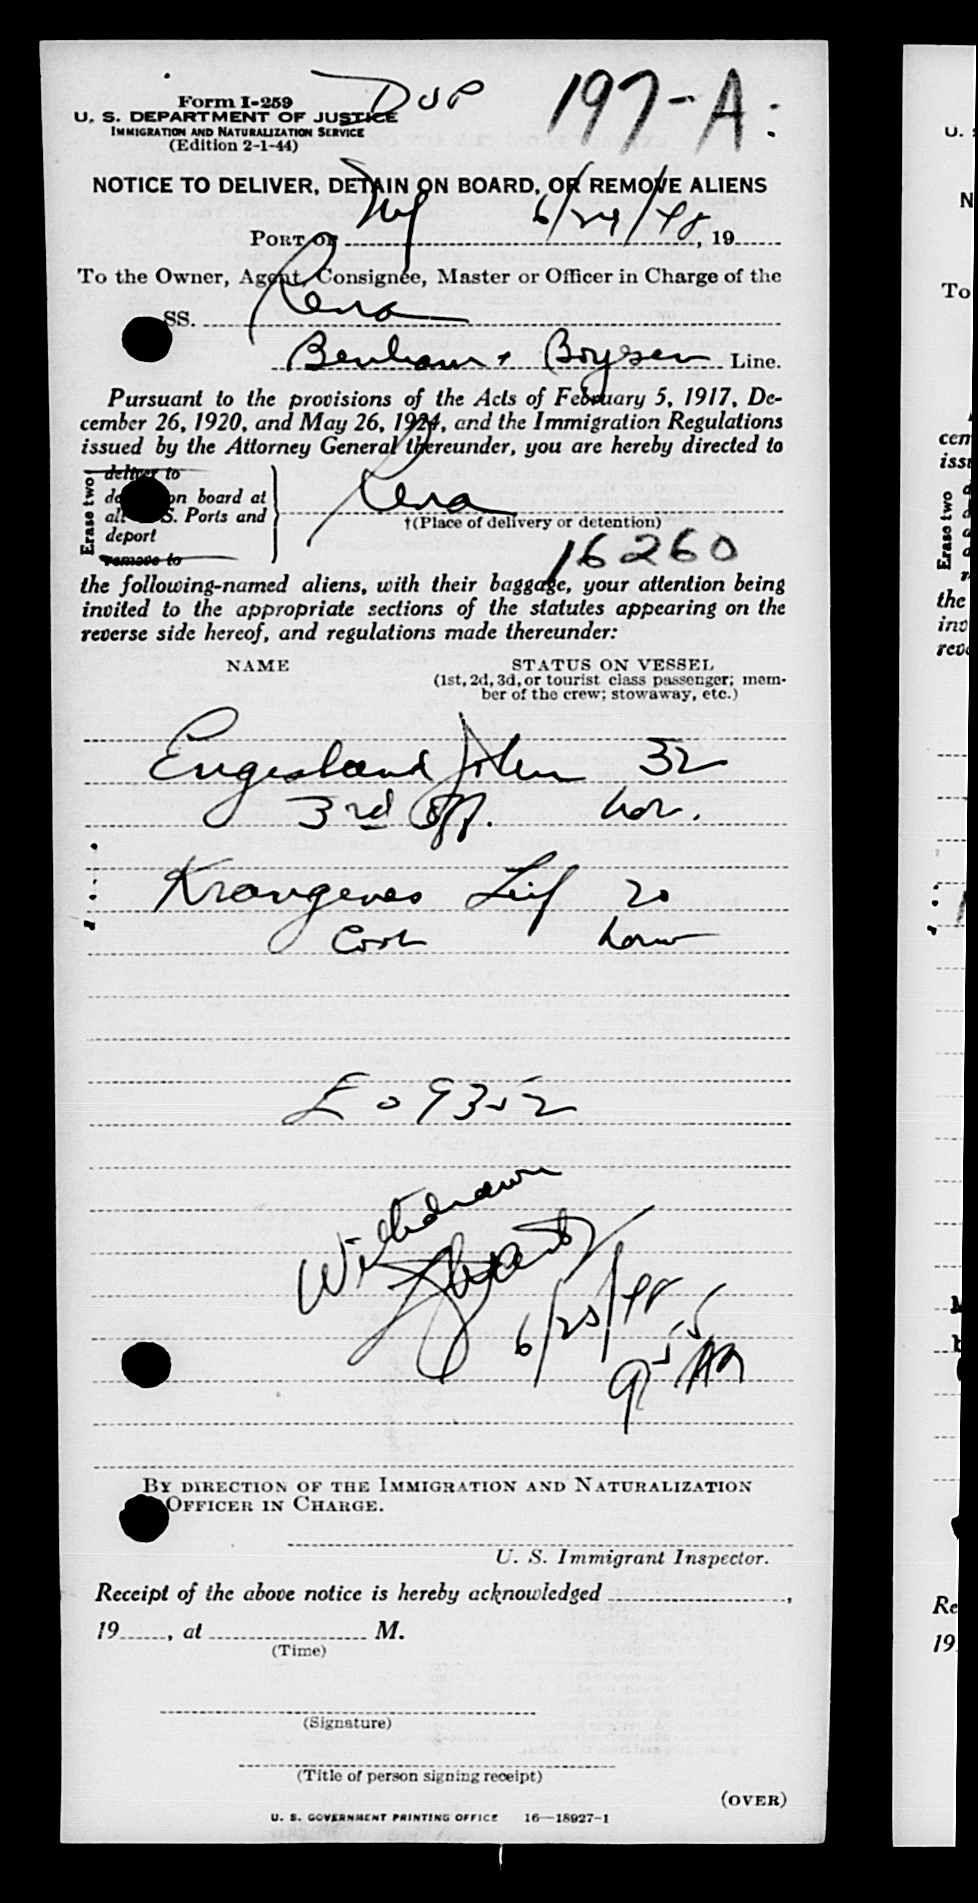 DUP 197-A
Form I-259
U. S. DEPARTMENT OF JUSTICE
IMMIGRATION AND NATURALIZATION SERVICE
(Edition 2-1-44)
NOTICE TO DELIVER, DETAIN ON BOARD, OR REMOVE ALIENS
PORT OF NY 6/24/48, 19
To the Owner, Agent, Consignée, Master or Officer in Charge of the
SS. Rena
Benham + Boysen Line.
Pursuant to the provisions of the Acts of February 5, 1917, De-
cember 26, 1920, and May 26, 1924, and the Immigration Regulations
issued by the Attorney General thereunder, you are hereby directed to
Erase two
deliver to
on board at
S. Ports and
deport
remove to
Rena
†(Place of delivery or detention)
16260
the following-named aliens, with their baggage, your attention being
invited to the appropriate sections of the statutes appearing on the
reverse side hereof, and regulations made thereunder:
NAME STATUS ON VESSEL
(1st, 2d, 3d, or tourist class passenger; mem-
ber of the crew; stowaway, etc.)
Engesland John 32
3rd Off. Nor.
Krangenes Leif 20
Cook Norw
E 09352
Withdrawn
6/25/48
9 55 AM
BY DIRECTION OF THE IMMIGRATION AND NATURALIZATION
OFFICER IN CHARGE.
U. S. Immigrant Inspector.
Receipt of the above notice is hereby acknowledged ,
19 , at M.
(Time)
(Signature)
(Title of person signing receipt)
(OVER)
U. S. GOVERNMENT PRINTING OFFICE 16—18927-1